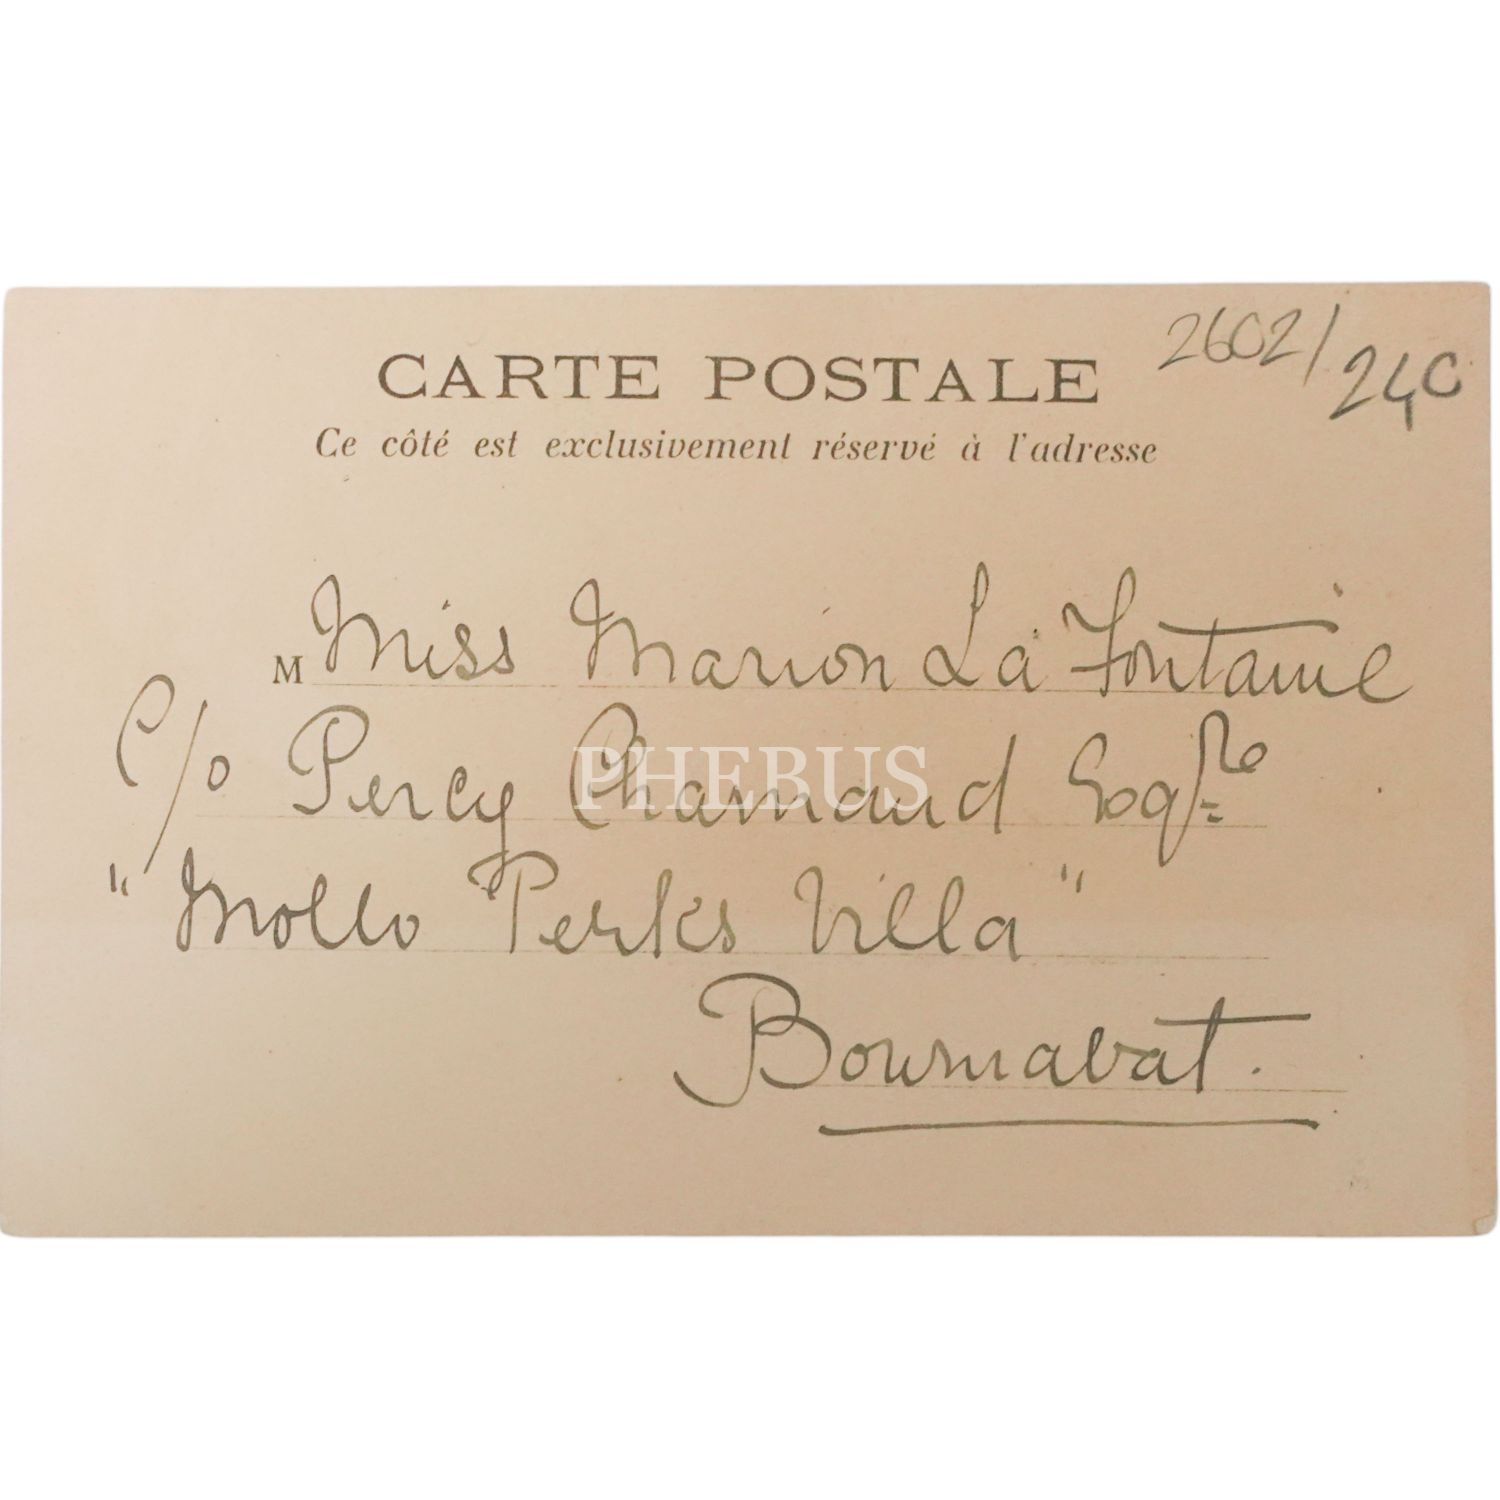 CARTE POSTALE
2602/240
Ce côté est exclusivement réservé à l'adresse
M Miss Marion La Fontaine
C/o Percy Charnaud Esqre
"Mollo Perks Villa"
Bournabat.
PHEBUS